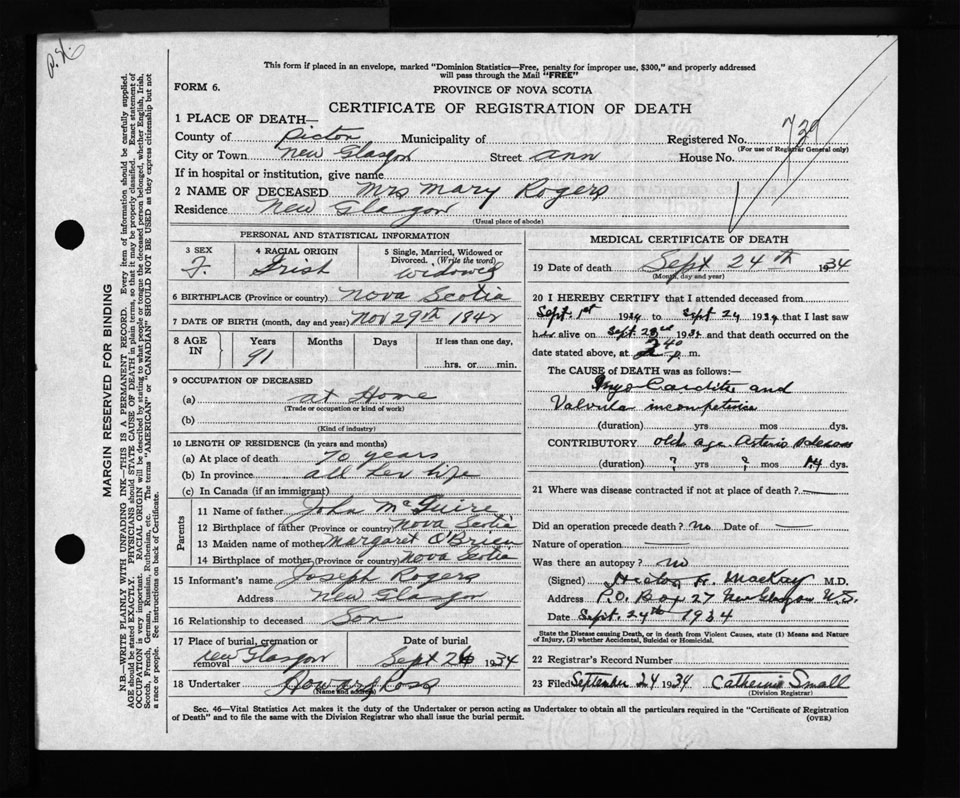 This form if placed in an envelope, marked "Dominion Statistics—Free, penalty for improper use, $300," and properly addressed
will pass through the Mail "FREE"
FORM 6.
PROVINCE OF NOVA SCOTIA
CERTIFICATE OF REGISTRATION OF DEATH
1 PLACE OF DEATH—
County of Pictou Municipality of Registered No. 739
(For use of Registrar General only)
City or Town New Glasgow Street Ann House No.
If in hospital or institution, give name
2 NAME OF DECEASED Mrs Mary Rogers
Residence New Glasgow
(Usual place of abode)
PERSONAL AND STATISTICAL INFORMATION
3 SEX F. 4 RACIAL ORIGIN Irish 5 Single, Married, Widowed or Divorced. (Write the word) Widowed
6 BIRTHPLACE (Province or country) Nova Scotia
7 DATE OF BIRTH (month, day and year) Nov 29th 1842
8 AGE IN Years 91 Months Days If less than one day, hrs. or min.
9 OCCUPATION OF DECEASED
(a) at Home
(Trade or occupation or kind of work)
(b)
(Kind of industry)
10 LENGTH OF RESIDENCE (In years and months)
(a) At place of death 70 years
(b) In province all her life
(c) In Canada (if an immigrant)
Parents
11 Name of father John McGuire
12 Birthplace of father (Province or country) Nova Scotia
13 Maiden name of mother Margaret O'Brien
14 Birthplace of mother (Province or country) Nova Scotia
15 Informant's name Joseph Rogers
Address New Glasgow
16 Relationship to deceased Son
17 Place of burial, cremation or removal New Glasgow Date of burial Sept 26 1934
18 Undertaker Howard Ross
(Name and address)
MEDICAL CERTIFICATE OF DEATH
19 Date of death Sept 24th 1934
(Month, day and year)
20 I HEREBY CERTIFY that I attended deceased from
Sept. 1st 1934 to Sept 24 1934 that I last saw
her alive on Sept. 23rd 1934 and that death occurred on the
date stated above, at 2 40 p. m.
The CAUSE of DEATH was as follows:—
Myo Carditis and
Valvular incompetence
(duration) yrs mos dys.
CONTRIBUTORY old age. Arterio Sclerosis
(duration) ? yrs ? mos 14 dys.
21 Where was disease contracted if not at place of death?
Did an operation precede death? no Date of
Nature of operation
Was there an autopsy? no
(Signed) Hector MacKay M.D.
Address P.O. Box 27 New Glasgow N.S.
Date Sept. 24th 1934
State the Disease causing Death, or in death from Violent Causes, state (1) Means and Nature
of Injury, (2) whether Accidental, Suicidal or Homicidal.
22 Registrar's Record Number
23 Filed September 24 1934 Catherine Small
(Division Registrar)
Sec. 46—Vital Statistics Act makes it the duty of the Undertaker or person acting as Undertaker to obtain all the particulars required in the "Certificate of Registration
of Death" and to file the same with the Division Registrar who shall issue the burial permit.
(OVER)
MARGIN RESERVED FOR BINDING
N.B.—WRITE PLAINLY WITH UNFADING INK—THIS IS A PERMANENT RECORD. Every item of information should be carefully supplied.
AGE should be stated EXACTLY. PHYSICIANS should STATE CAUSE OF DEATH in plain terms, so that it may be properly classified. Exact statement of
OCCUPATION is very important. RACIAL ORIGIN will be described by stating to what people or tongue the deceased person belonged, whether English, Irish,
Scotch, French, German, Russian, Ruthenian, etc. The terms "AMERICAN" or "CANADIAN" SHOULD NOT BE USED as they express citizenship but not
a race or people. See instructions on back of Certificate.